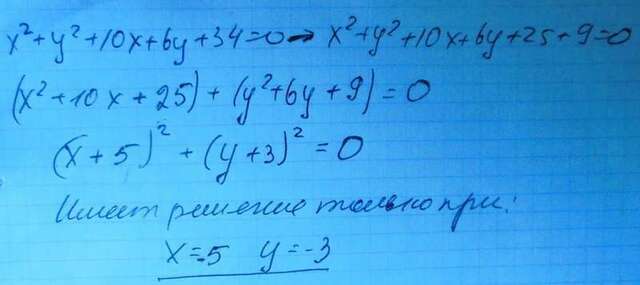 x²+y²+10x+6y+34=0→ x²+y²+10x+6y+25+9=0
(x²+10x+25)+(y²+6y+9)=0
(x+5)²+(y+3)²=0
Имеет решение только при:
x=-5 y=-3